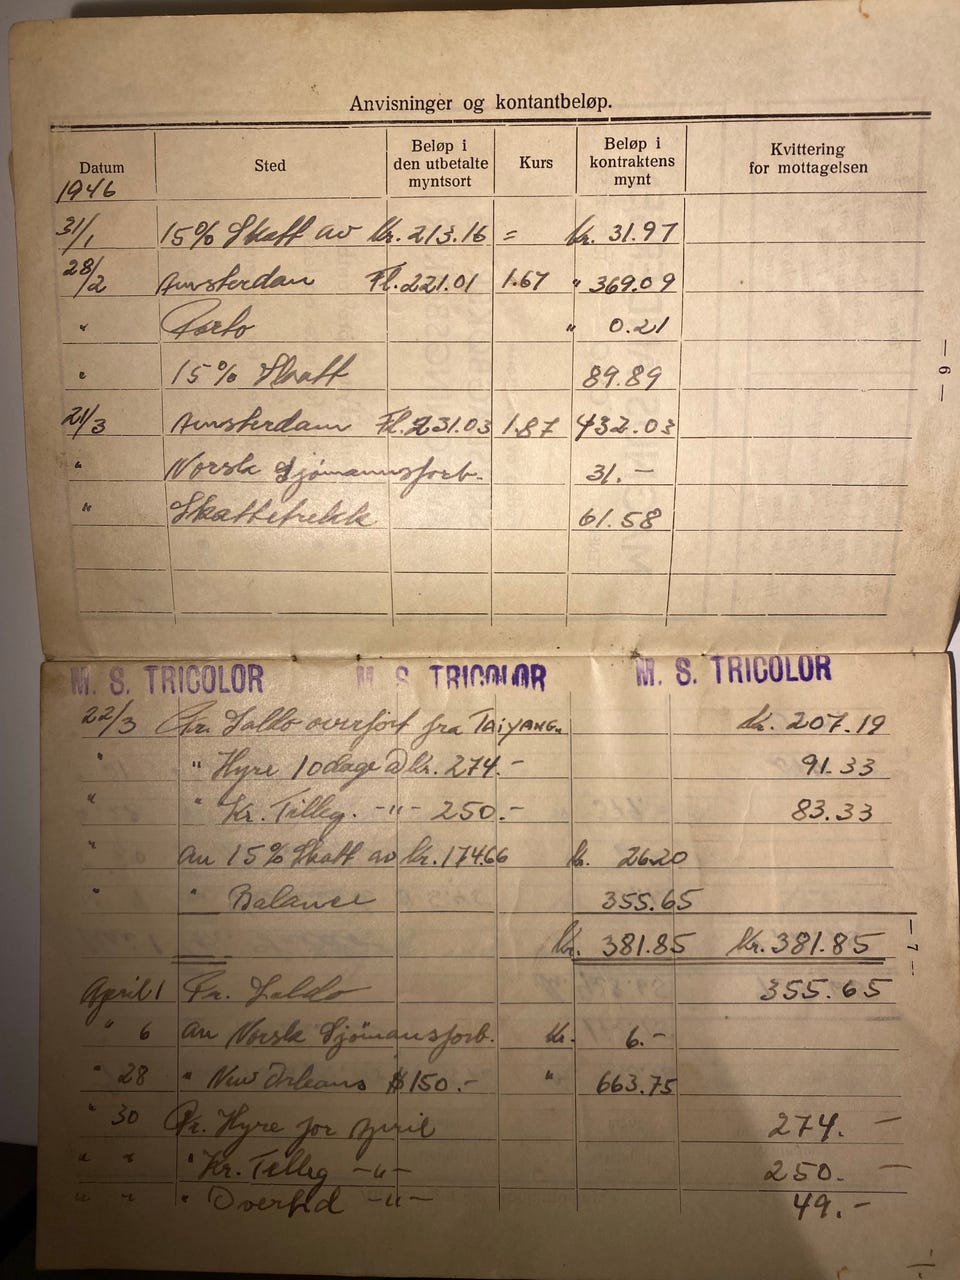 Anvisninger og kontantbeløp.
Datum Sted Beløp i den utbetalte myntsort Kurs Beløp i kontraktens mynt Kvittering for mottagelsen
1946
31/1 15% Skatt av Kr. 213.16 = Kr. 31.97
28/2 Amsterdam Fl. 221.01 1.67 " 369.09
" Porto " 0.21
" 15% Skatt 89.89
21/3 Amsterdam Fl. 231.03 1.87 432.03
" Norsk Sjömannsforb. 31.-
" Skattetrekk 61.58
- 6 -
M. S. TRICOLOR M. S. TRICOLOR M. S. TRICOLOR
22/3 Pr. Saldo overfört fra TAIYANG. Kr. 207.19
" " Hyre 10 dage a Kr. 274.- 91.33
" " Kr. Tilleg. -"- 250.- 83.33
" an 15% Skatt av Kr. 174.66 Kr. 26.20
" " Balance 355.65
Kr. 381.85 Kr. 381.85
- 7 -
April 1 Pr. Saldo 355.65
" 6 an Norsk Sjömansforb. Kr. 6.-
" 28 " New Orleans $150.- " 663.75
" 30 Pr. Hyre for april 274. -
" " " Kr. Tilleg -"- 250. -
" " " Overtid -"- 49.-